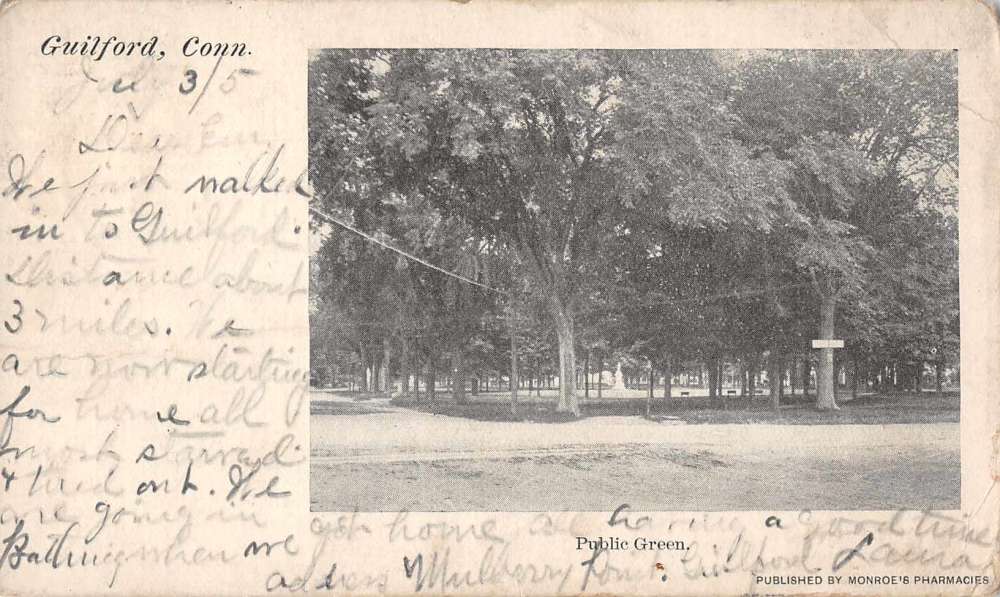 Guilford, Conn.
July 3/5
Dear
We just walked
in to Guilford.
Distance about
3 miles. We
are now starting
for home all
most starved
& tired out. We
are going in
Bathing when we
get home. all having a good time
Public Green.
address Mulberry Point. Guilford Laura
PUBLISHED BY MONROE'S PHARMACIES